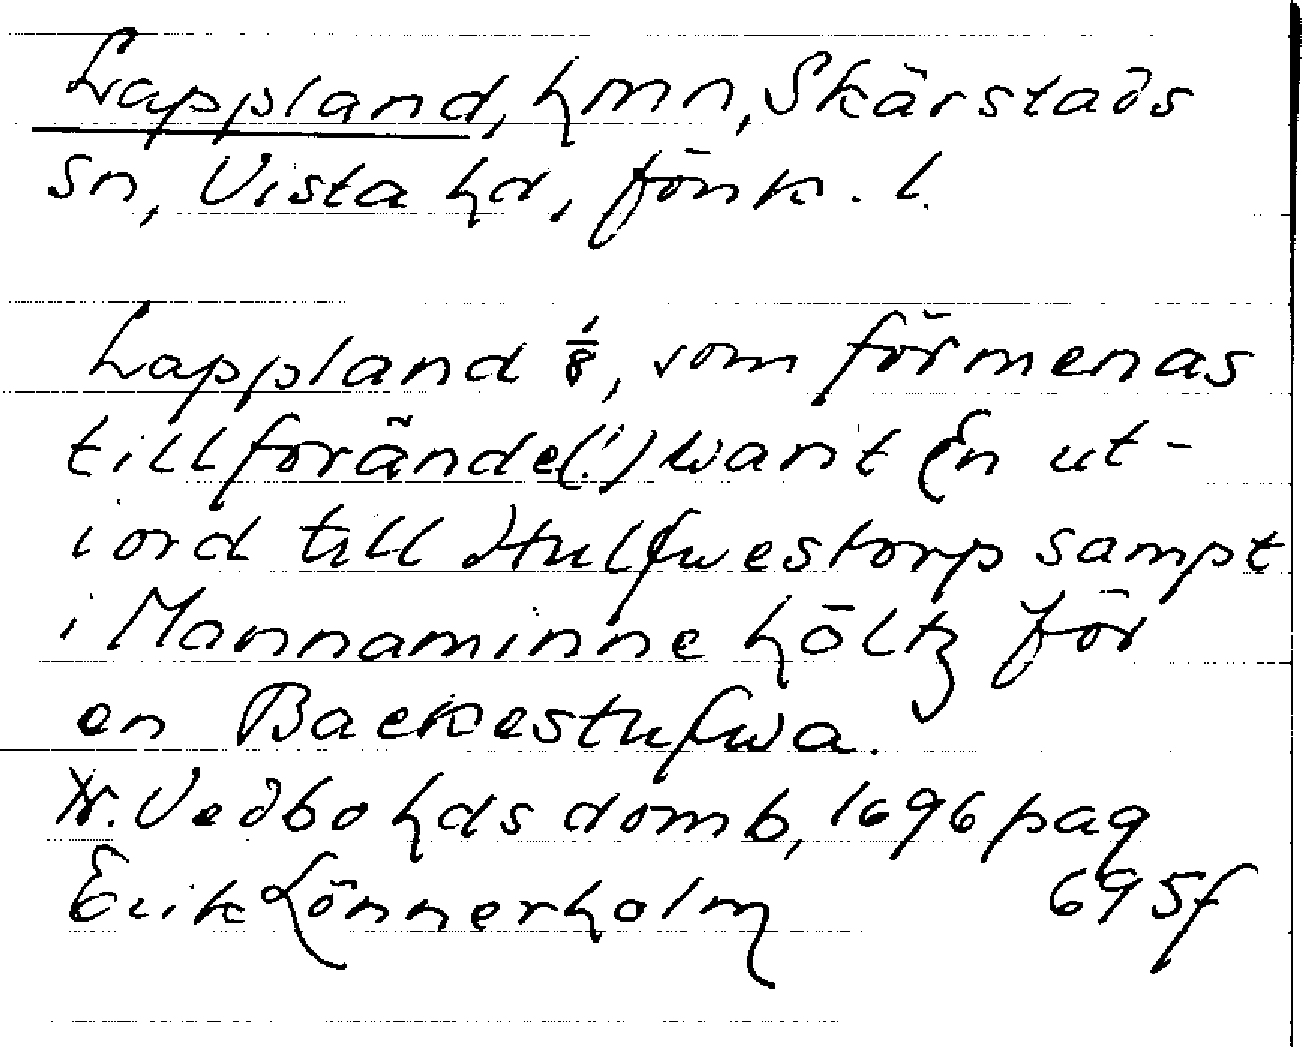 Lappland, hmn, Skärstads
sn, Vista hd, fönk. l.
Lappland 1/8, som förmenas
tillforände(!) warit En ut-
iord till Hulfwestorp sampt
i Mannaminne höltz för
en Backestufwa.
N. Vedbo hds domb, 1696 pag
Erik Lönnerholm 695f